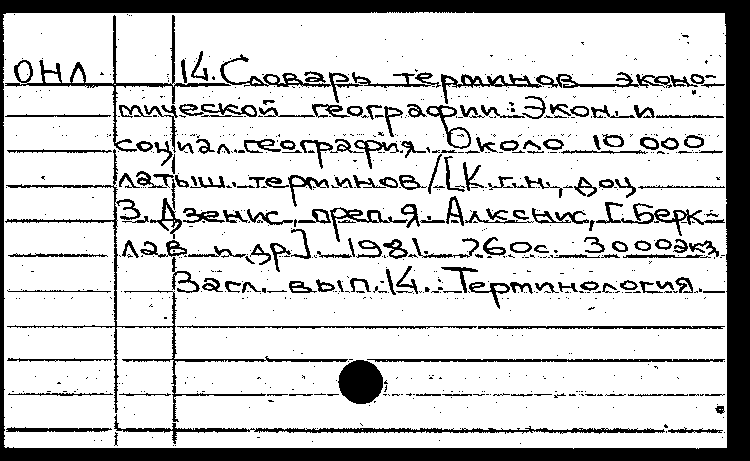 ОНЛ 14. Словарь терминов эконо-
мической географии: Экон. и
социал. география. Около 10 000
латыш. терминов / [К.г.н., доц.
З. Дзенис, преп. Я. Алкснис, Г. Берк-
лав и др]. 1981. 760с. 3000экз
Загл. вып. 14.: Терминология.